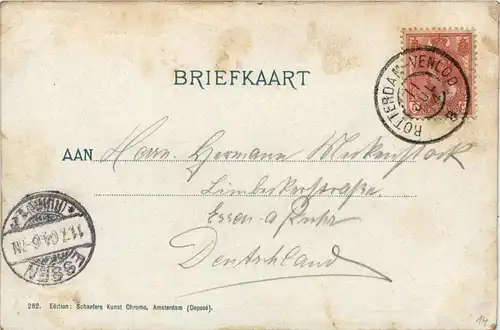 BRIEFKAART
ROTTERDAM-VENLOO
B
AAN Herrn Hermann Merkenstock
Limbeckerstraße
Essen a/Ruhr
Deutschland
ESSEN
11.7.04.6-7N
(RUHR)
262. Edition: Schaefers Kunst Chromo, Amsterdam (Deposé).
14